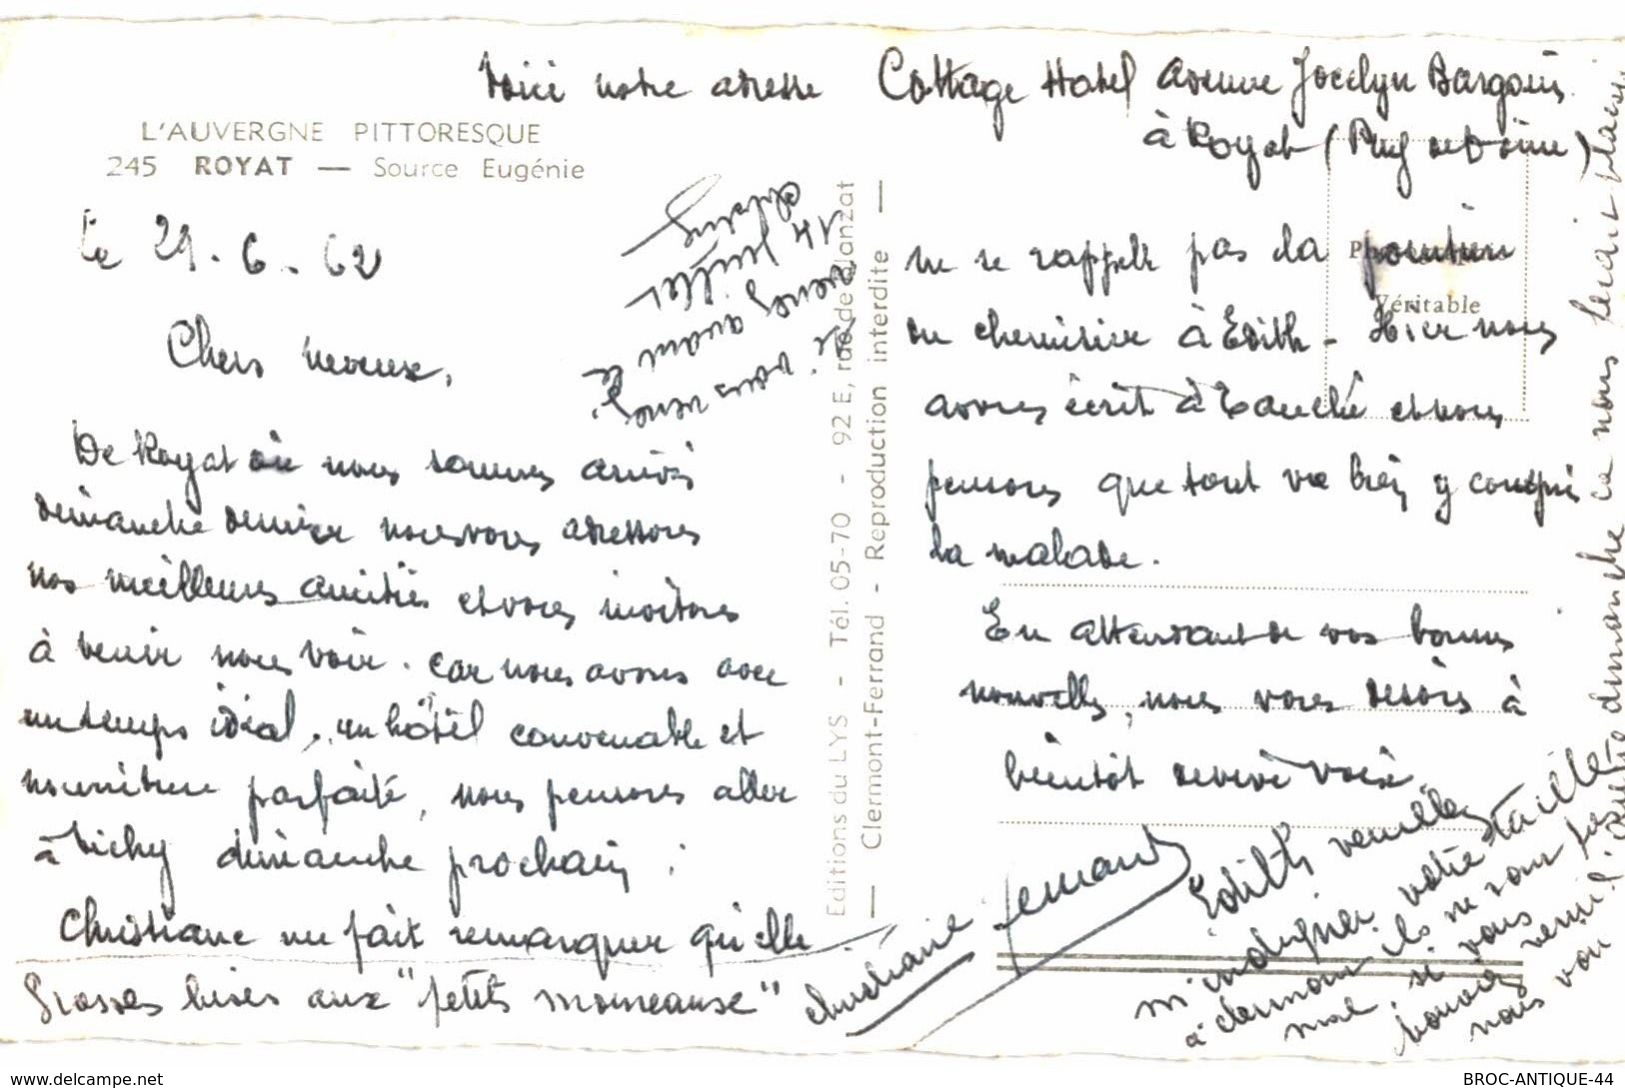 Voici notre adresse Cottage Hotel Avenue Jocelyn Bargoin
à Royat (Puy de Dôme)
L'AUVERGNE PITTORESQUE
245 ROYAT — Source Eugénie
le 29.6.62
Chers neveux,
De Royat où nous sommes arrivés
dimanche dernier nous vous adressons
nos meilleures amitiés et vous invitons
à venir nous voir. Car nous avons avec
un temps idéal, un hôtel convenable et
nourriture parfaite, nous pensons aller
à Vichy dimanche prochain ;
Christiane me fait remarquer qu'elle
Grosses bises aux "petits moineaux"
si vous venez
venez avant le
14 Juillet
Christiane
Editions du LYS - Tél. 05-70 - 92 E, rue de Blanzat
— Clermont-Ferrand - Reproduction interdite —
Véritable
ne se rappelle pas la pointure
du chemisier à Edith - Hier nous
avons écrit à et nous
pensons que tout va bien y compris
la malade.
En attendant de vos bonnes
nouvelles, nous vous disons à
bientôt de vive voix
Christiane Fernand
Edith veuillez
m'indiquer votre taille
à clermont ils ne sont pas
mal, si vous
pouvez venir
nous voir
dimanche ça nous ferait plaisir
BROC-ANTIQUE-44
www.delcampe.net